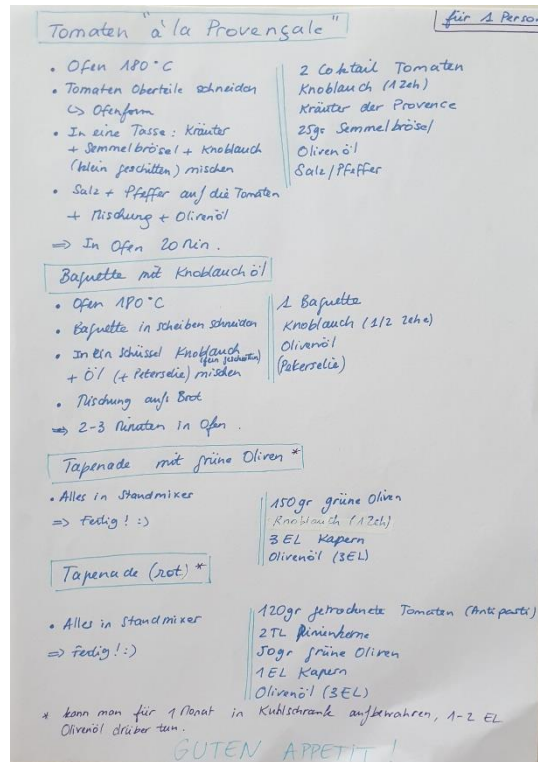 Tomaten "à la Provençale"
für 1 Person
• Ofen 180°C
• Tomaten Oberteile schneiden
↳ Ofenform
• In eine Tasse: Kräuter
+ Semmelbrösel + Knoblauch
(klein geschitten) mischen
• Salz + Pfeffer auf die Tomaten
+ Mischung + Olivenöl
⇒ In Ofen 20 Min.
2 Coktail Tomaten
Knoblauch (1 Zeh)
Kräuter der Provence
25gr Semmelbrösel
Olivenöl
Salz/Pfeffer
Baguette mit Knoblauchöl
• Ofen 180°C
• Baguette in scheiben schneiden
• In ein Schüssel Knoblauch (fein geschnitten)
+ Öl (+ Peterselie) mischen
• Mischung aufs Brot
⇒ 2-3 Minuten in Ofen.
1 Baguette
Knoblauch (1/2 Zehe)
Olivenöl
(Peterselie)
Tapenade mit grüne Oliven *
• Alles in Standmixer
⇒ Fertig! :)
150gr grüne Oliven
Knoblauch (1 Zeh)
3 EL Kapern
Olivenöl (3EL)
Tapenade (rot) *
• Alles in Standmixer
⇒ Fertig! :)
120gr getrocknete Tomaten (Antipasti)
2TL Pinienkerne
50gr grüne Oliven
1EL Kapern
Olivenöl (3EL)
* kann man für 1 Monat in Kuhlschrank aufbewahren, 1-2 EL
Olivenöl drüber tun.
GUTEN APPETIT !